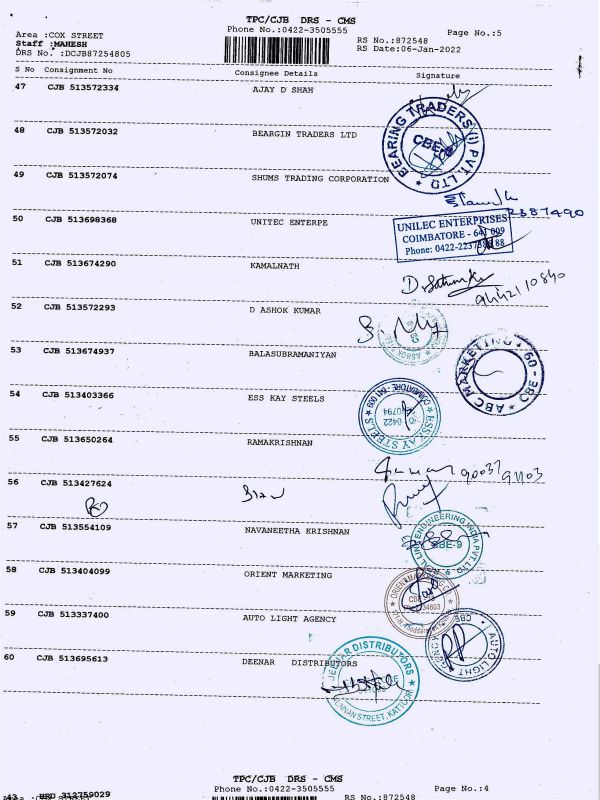 TPC/CJB DRS - CMS
Phone No.:0422-3505555
Page No.:5
Area :COX STREET
Staff :MAHESH
RS No.:872548
DRS No. :DCJB87254805
RS Date:06-Jan-2022
S No Consignment No Consignee Details Signature
47 CJB 513572334 AJAY D SHAH
48 CJB 513572032 BEARGIN TRADERS LTD
BEARING TRADERS (I) PVT. LTD
CBE
49 CJB 513572074 SHUMS TRADING CORPORATION
50 CJB 513698368 UNITEC ENTERPE
UNILEC ENTERPRISES
COIMBATORE - 641 009
Phone: 0422-2237
51 CJB 513674290 KAMALNATH
9442110840
52 CJB 513572293 D ASHOK KUMAR
ASHOK
53 CJB 513674937 BALASUBRAMANIYAN
ABC MARKETING 60 - 38
54 CJB 513403366 ESS KAY STEELS
ESSKAY STEELS
COIMBATORE - 641 009
0422
55 CJB 513650264 RAMAKRISHNAN
56 CJB 513427624
57 CJB 513554109 NAVANEETHA KRISHNAN
ENGINEERING INDIA PVT LTD
CBE-9
58 CJB 513404099 ORIENT MARKETING
59 CJB 513337400 AUTO LIGHT AGENCY
AUTO LIGHT
CBE
60 CJB 513695613 DEENAR DISTRIBUTORS
DISTRIBUTORS
STREET, KATTOOR
TPC/CJB DRS - CMS
Phone No.:0422-3505555
Page No.:4
43 312759029
RS No.:872548